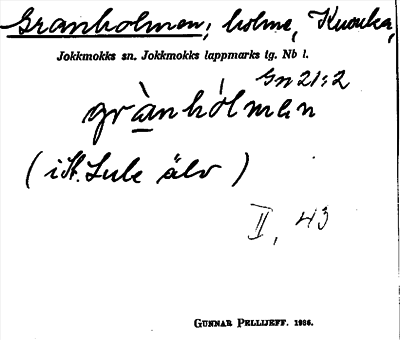 Granholmen, holme, Knouka,
Jokkmokks sn. Jokkmokks lappmarks tg. Nb l.
Gn 21:2
grànhólmen
(i St. Lule älv)
II, 43
GUNNAR PELLIJEFF. 1936.